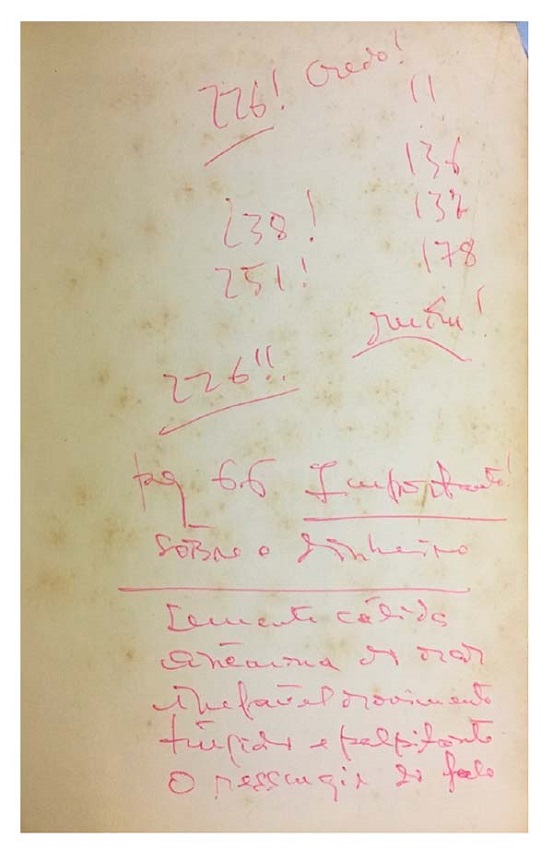 226! Credo!
11
136
137
238!
178
251!
226!!
pag 66 Importante!
sobre o dinheiro
Semente cálida
do
Inefável movimento
túrgido e palpitante
O ressurgir do falo